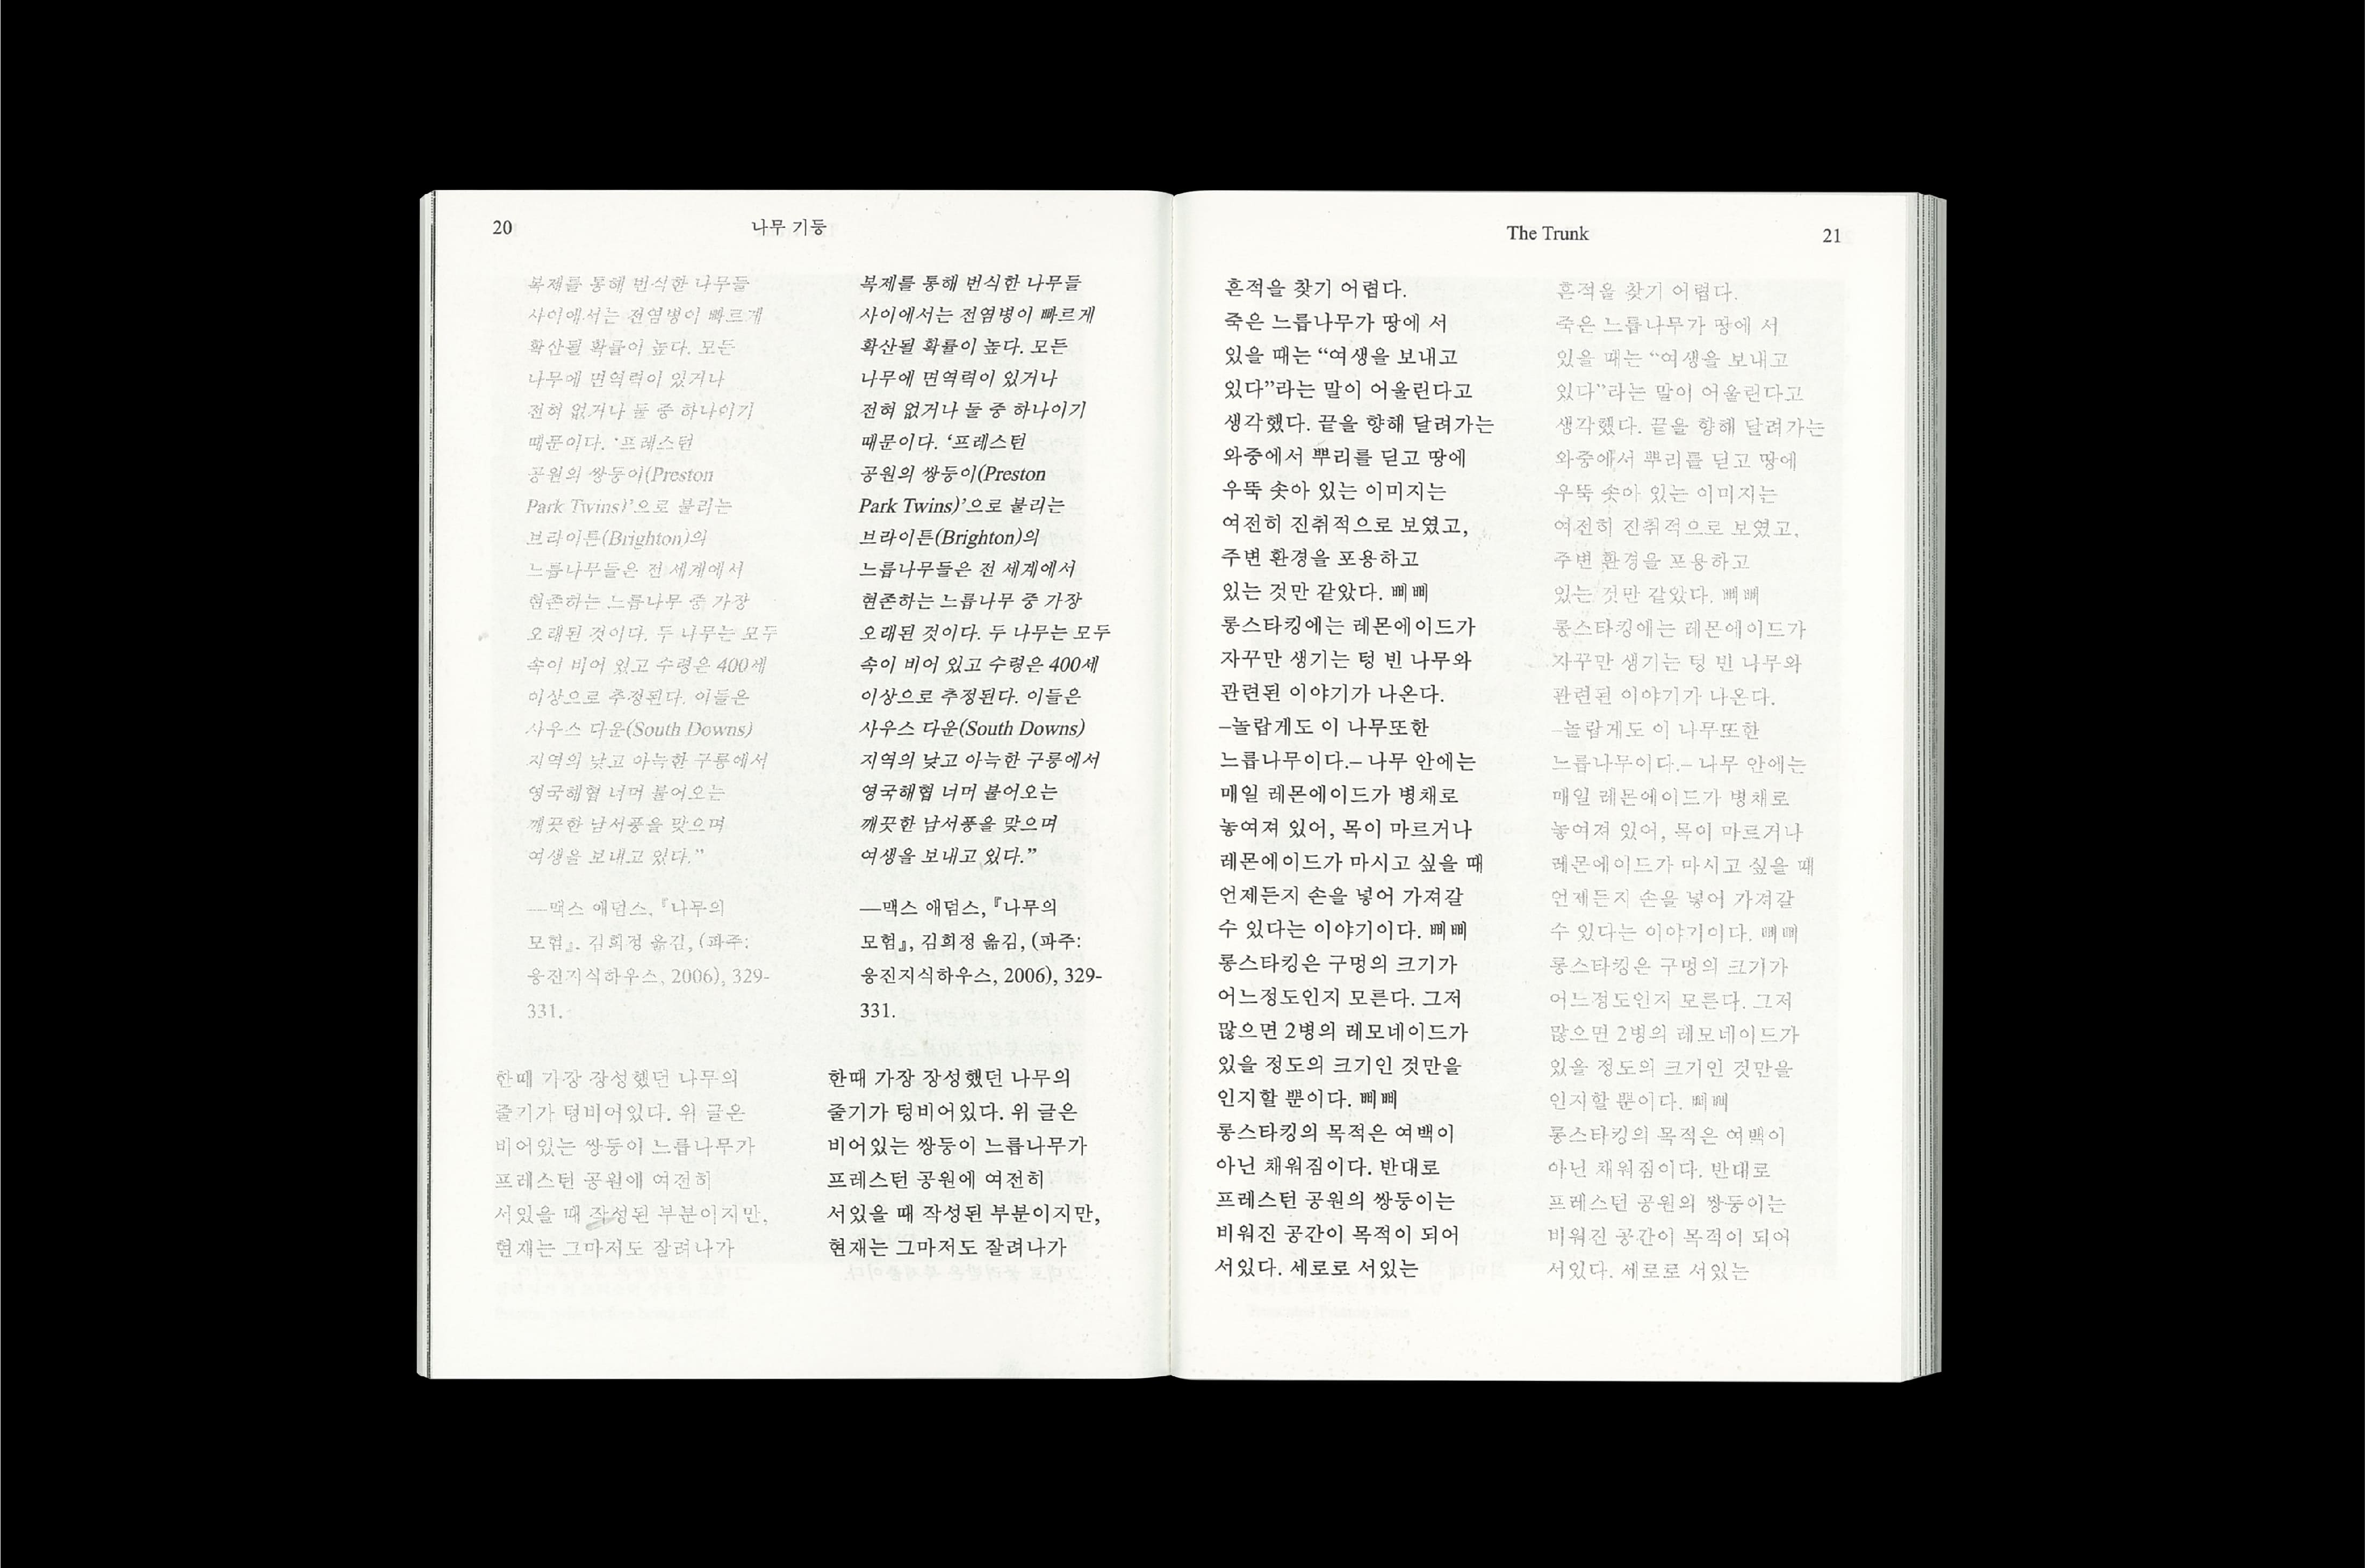 20
나무 기둥
복제를 통해 번식한 나무들
사이에서는 전염병이 빠르게
확산될 확률이 높다. 모든
나무에 면역력이 있거나
전혀 없거나 둘 중 하나이기
때문이다. ‘프레스턴
공원의 쌍둥이(Preston
Park Twins)’으로 불리는
브라이튼(Brighton)의
느릅나무들은 전 세계에서
현존하는 느릅나무 중 가장
오래된 것이다. 두 나무는 모두
속이 비어 있고 수령은 400세
이상으로 추정된다. 이들은
사우스 다운(South Downs)
지역의 낮고 아늑한 구릉에서
영국해협 너머 불어오는
깨끗한 남서풍을 맞으며
여생을 보내고 있다.”
—맥스 애덤스, 『나무의
모험』. 김희정 옮김, (파주:
웅진지식하우스, 2006), 329-
331.
한때 가장 장성했던 나무의
줄기가 텅비어있다. 위 글은
비어있는 쌍둥이 느릅나무가
프레스턴 공원에 여전히
서있을 때 작성된 부분이지만,
현재는 그마저도 잘려나가
복제를 통해 번식한 나무들
사이에서는 전염병이 빠르게
확산될 확률이 높다. 모든
나무에 면역력이 있거나
전혀 없거나 둘 중 하나이기
때문이다. ‘프레스턴
공원의 쌍둥이(Preston
Park Twins)’으로 불리는
브라이튼(Brighton)의
느릅나무들은 전 세계에서
현존하는 느릅나무 중 가장
오래된 것이다. 두 나무는 모두
속이 비어 있고 수령은 400세
이상으로 추정된다. 이들은
사우스 다운(South Downs)
지역의 낮고 아늑한 구릉에서
영국해협 너머 불어오는
깨끗한 남서풍을 맞으며
여생을 보내고 있다.”
—맥스 애덤스, 『나무의
모험』, 김희정 옮김, (파주:
웅진지식하우스, 2006), 329-
331.
한때 가장 장성했던 나무의
줄기가 텅비어있다. 위 글은
비어있는 쌍둥이 느릅나무가
프레스턴 공원에 여전히
서있을 때 작성된 부분이지만,
현재는 그마저도 잘려나가
The Trunk
21
흔적을 찾기 어렵다.
죽은 느릅나무가 땅에 서
있을 때는 “여생을 보내고
있다”라는 말이 어울린다고
생각했다. 끝을 향해 달려가는
와중에서 뿌리를 딛고 땅에
우뚝 솟아 있는 이미지는
여전히 진취적으로 보였고,
주변 환경을 포용하고
있는 것만 같았다. 삐삐
롱스타킹에는 레몬에이드가
자꾸만 생기는 텅 빈 나무와
관련된 이야기가 나온다.
–놀랍게도 이 나무또한
느릅나무이다.– 나무 안에는
매일 레몬에이드가 병채로
놓여져 있어, 목이 마르거나
레몬에이드가 마시고 싶을 때
언제든지 손을 넣어 가져갈
수 있다는 이야기이다. 삐삐
롱스타킹은 구멍의 크기가
어느정도인지 모른다. 그저
많으면 2병의 레모네이드가
있을 정도의 크기인 것만을
인지할 뿐이다. 삐삐
롱스타킹의 목적은 여백이
아닌 채워짐이다. 반대로
프레스턴 공원의 쌍둥이는
비워진 공간이 목적이 되어
서있다. 세로로 서있는
흔적을 찾기 어렵다.
죽은 느릅나무가 땅에 서
있을 때는 “여생을 보내고
있다”라는 말이 어울린다고
생각했다. 끝을 향해 달려가는
와중에서 뿌리를 딛고 땅에
우뚝 솟아 있는 이미지는
여전히 진취적으로 보였고,
주변 환경을 포용하고
있는 것만 같았다. 삐삐
롱스타킹에는 레몬에이드가
자꾸만 생기는 텅 빈 나무와
관련된 이야기가 나온다.
–놀랍게도 이 나무또한
느릅나무이다.– 나무 안에는
매일 레몬에이드가 병채로
놓여져 있어, 목이 마르거나
레몬에이드가 마시고 싶을 때
언제든지 손을 넣어 가져갈
수 있다는 이야기이다. 삐삐
롱스타킹은 구멍의 크기가
어느정도인지 모른다. 그저
많으면 2병의 레모네이드가
있을 정도의 크기인 것만을
인지할 뿐이다. 삐삐
롱스타킹의 목적은 여백이
아닌 채워짐이다. 반대로
프레스턴 공원의 쌍둥이는
비워진 공간이 목적이 되어
서있다. 세로로 서있는